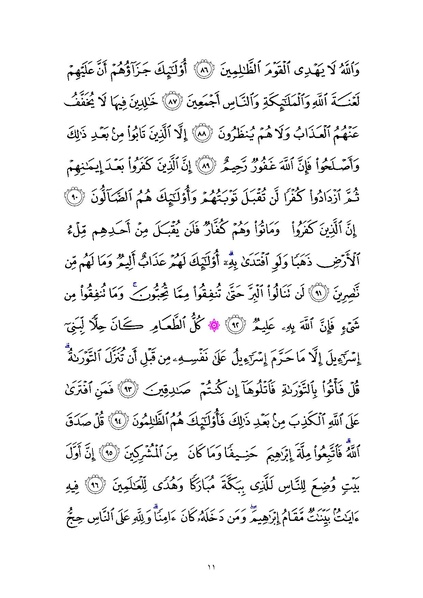 وَٱللَّهُ لَا يَهْدِى ٱلْقَوْمَ ٱلظَّٰلِمِينَ ٨٦ أُو۟لَٰٓئِكَ جَزَآؤُهُمْ أَنَّ عَلَيْهِمْ
لَعْنَةَ ٱللَّهِ وَٱلْمَلَٰٓئِكَةِ وَٱلنَّاسِ أَجْمَعِينَ ٨٧ خَٰلِدِينَ فِيهَا لَا يُخَفَّفُ
عَنْهُمُ ٱلْعَذَابُ وَلَا هُمْ يُنظَرُونَ ٨٨ إِلَّا ٱلَّذِينَ تَابُوا۟ مِنۢ بَعْدِ ذَٰلِكَ
وَأَصْلَحُوا۟ فَإِنَّ ٱللَّهَ غَفُورٌ رَّحِيمٌ ٨٩ إِنَّ ٱلَّذِينَ كَفَرُوا۟ بَعْدَ إِيمَٰنِهِمْ
ثُمَّ ٱزْدَادُوا۟ كُفْرًا لَّن تُقْبَلَ تَوْبَتُهُمْ وَأُو۟لَٰٓئِكَ هُمُ ٱلضَّآلُّونَ ٩٠
إِنَّ ٱلَّذِينَ كَفَرُوا۟ وَمَاتُوا۟ وَهُمْ كُفَّارٌ فَلَن يُقْبَلَ مِنْ أَحَدِهِم مِّلْءُ
ٱلْأَرْضِ ذَهَبًا وَلَوِ ٱفْتَدَىٰ بِهِۦٓ ۗ أُو۟لَٰٓئِكَ لَهُمْ عَذَابٌ أَلِيمٌ وَمَا لَهُم مِّن
نَّٰصِرِينَ ٩١ لَن تَنَالُوا۟ ٱلْبِرَّ حَتَّىٰ تُنفِقُوا۟ مِمَّا تُحِبُّونَ ۚ وَمَا تُنفِقُوا۟ مِن
شَىْءٍ فَإِنَّ ٱللَّهَ بِهِۦ عَلِيمٌ ٩٢ ۞ كُلُّ ٱلطَّعَامِ كَانَ حِلًّا لِّبَنِىٓ
إِسْرَٰٓءِيلَ إِلَّا مَا حَرَّمَ إِسْرَٰٓءِيلُ عَلَىٰ نَفْسِهِۦ مِن قَبْلِ أَن تُنَزَّلَ ٱلتَّوْرَىٰةُ ۗ
قُلْ فَأْتُوا۟ بِٱلتَّوْرَىٰةِ فَٱتْلُوهَآ إِن كُنتُمْ صَٰدِقِينَ ٩٣ فَمَنِ ٱفْتَرَىٰ
عَلَى ٱللَّهِ ٱلْكَذِبَ مِنۢ بَعْدِ ذَٰلِكَ فَأُو۟لَٰٓئِكَ هُمُ ٱلظَّٰلِمُونَ ٩٤ قُلْ صَدَقَ
ٱللَّهُ ۗ فَٱتَّبِعُوا۟ مِلَّةَ إِبْرَٰهِيمَ حَنِيفًا وَمَا كَانَ مِنَ ٱلْمُشْرِكِينَ ٩٥ إِنَّ أَوَّلَ
بَيْتٍ وُضِعَ لِلنَّاسِ لَلَّذِى بِبَكَّةَ مُبَارَكًا وَهُدًى لِّلْعَٰلَمِينَ ٩٦ فِيهِ
ءَايَٰتٌۢ بَيِّنَٰتٌ مَّقَامُ إِبْرَٰهِيمَ ۖ وَمَن دَخَلَهُۥ كَانَ ءَامِنًا ۗ وَلِلَّهِ عَلَى ٱلنَّاسِ حِجُّ
١١